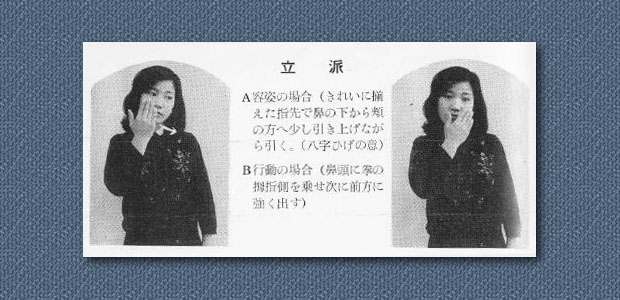 立派
A容姿の場合（きれいに揃
えた指先で鼻の下から頰
の方へ少し引き上げなが
ら引く。（八字ひげの意）
B行動の場合（鼻頭に拳の
拇指側を乗せ次に前方に
強く出す）